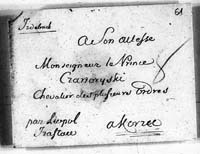 61
A Son Altesse
Monseigneur le Prince
Czartoryski
Chevalier des plusieurs Ordres
par Leopol
a Korzec